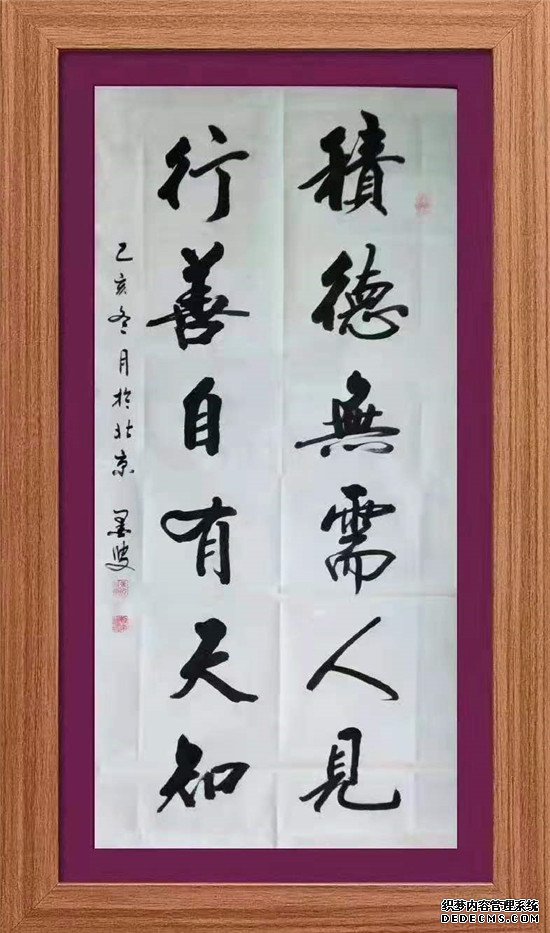 積德無需人見
行善自有天知
己亥冬月於北京
织梦内容管理系统
DEDECMS.COM